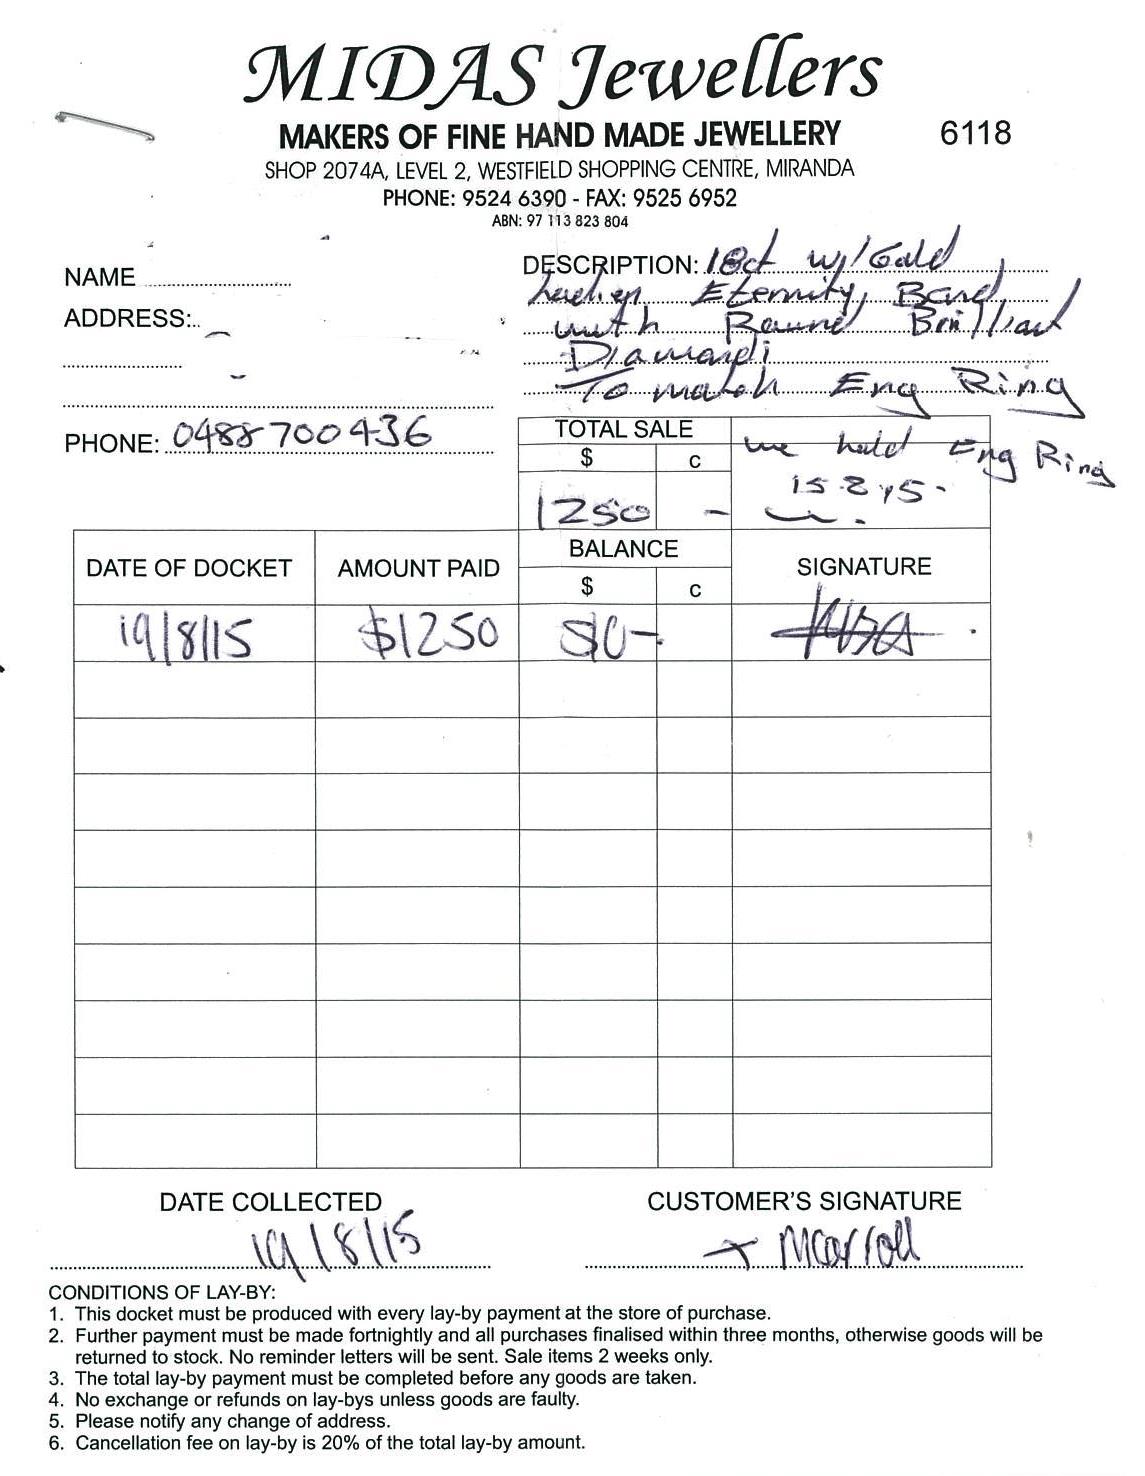 MIDAS Jewellers
MAKERS OF FINE HAND MADE JEWELLERY
6118
SHOP 2074A, LEVEL 2, WESTFIELD SHOPPING CENTRE, MIRANDA
PHONE: 9524 6390 - FAX: 9525 6952
ABN: 97 113 823 804
NAME
ADDRESS:
PHONE: 0488 700 436
DESCRIPTION: 18ct w/Gold
Eternity Band
with Round Brilliant
Diamonds
To match Eng Ring
TOTAL SALE
$ c
1250 -
we held Eng Ring
15.8.15.
DATE OF DOCKET AMOUNT PAID BALANCE SIGNATURE
$ c
19/8/15 $1250 $0-
DATE COLLECTED
19/8/15
CUSTOMER'S SIGNATURE
x MCarroll
CONDITIONS OF LAY-BY:
1. This docket must be produced with every lay-by payment at the store of purchase.
2. Further payment must be made fortnightly and all purchases finalised within three months, otherwise goods will be
returned to stock. No reminder letters will be sent. Sale items 2 weeks only.
3. The total lay-by payment must be completed before any goods are taken.
4. No exchange or refunds on lay-bys unless goods are faulty.
5. Please notify any change of address.
6. Cancellation fee on lay-by is 20% of the total lay-by amount.